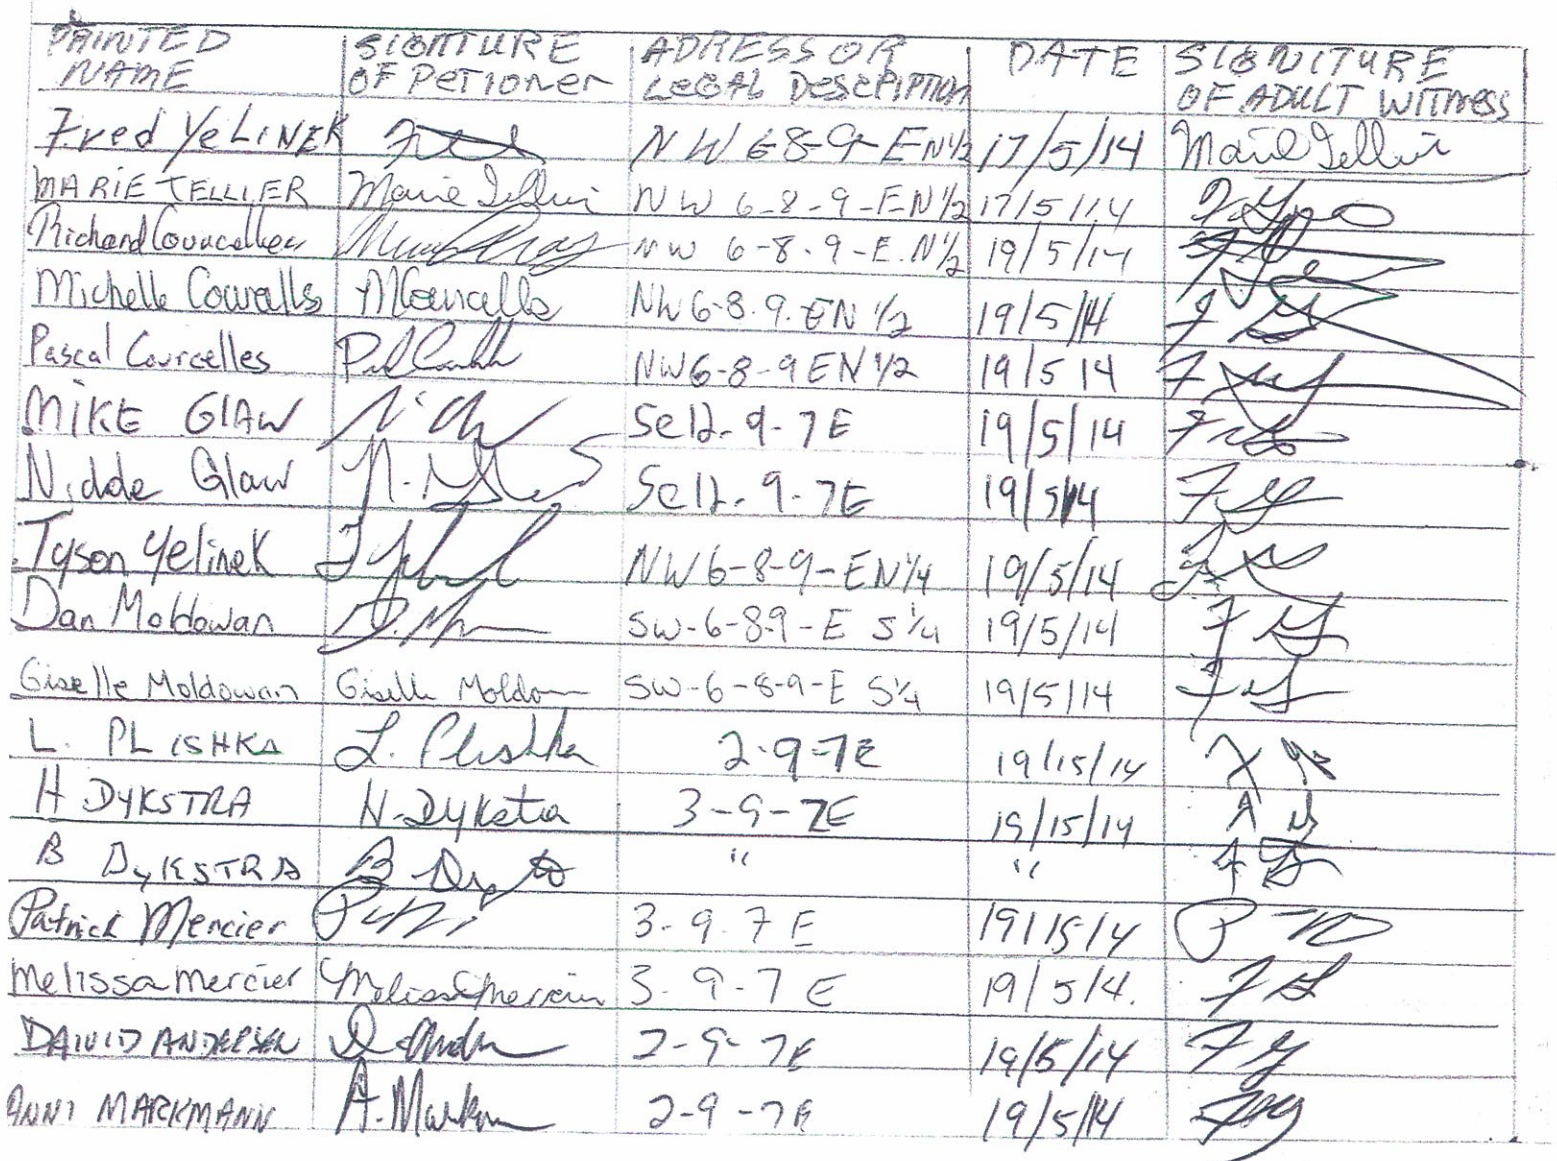 PRINTED NAME SIGNTURE OF PETIONER ADRESS OR LEGAL DESCRIPTION DATE SIGNITURE OF ADULT WITNESS
Fred YELINEK NW 6-8-9-EN½ 17/5/14 Marie Tellier
MARIE TELLIER Marie Tellier NW 6-8-9-EN½ 17/5/14
Richard Courcelles NW 6-8-9-E.N½ 19/5/14
Michelle Courcelles MCourcelles NW 6-8.9.EN ½ 19/5/14
Pascal Courcelles NW6-8-9EN ½ 19/5 14
MIKE GLAW SE12-9-7E 19/5/14
Glaw SE12-9-7E 19/5/14
Tyson Yelinek NW6-8-9-EN¼ 19/5/14
Dan Moldowan D. SW-6-89-E S¼ 19/5/14 F Y
Giselle Moldowan Giselle Moldowan SW-6-8-9-E S¼ 19/5/14 F Y
L. PLISHKA L. Plishka 2-9-7E 19/15/14
H DYKSTRA H. Dykstra 3-9-7E 19/15/14
B DYKSTRA B " "
Patrick Mercier 3-9-7 E 19/15/14
Melissa Mercier Melissa Mercier 3-9-7 E 19/5/4.
DAIVID ANDERSEN 2-9-7E 19/5/14 F Y
ANNI MARKMANN A. Markm 2-9-7E 19/5/14 FY